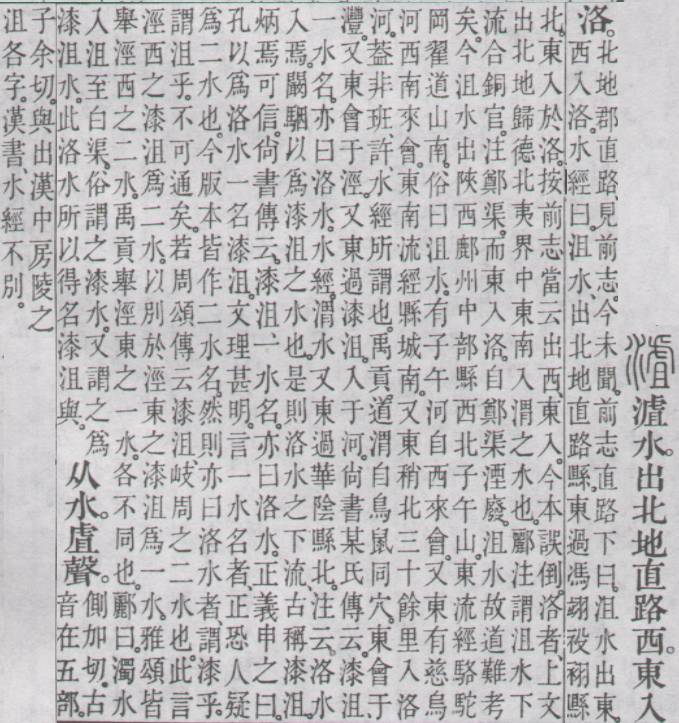 水。出北地直路西。東入
洛。
北地郡直路、見前志。今未聞。前志直路下曰。沮水出東
西入洛。水經曰。沮水、出北地直路縣。東過馮翊祋祤縣
北。東入於洛。按前志當云出西、東入。今本誤倒。洛者、上文
出北地歸德北夷界中東南入渭之水也。酈注謂沮水下
流合銅官。注鄭渠。而東入洛。自鄭渠湮廢。沮水故道難考
矣。今沮水出陝西鄜州中部縣西北子午山。東流經駱駝
岡翟道山南。俗曰沮水。有子午河自西來會。又東有慈烏
河西南來會。東南流經縣城南。又東稍北三十餘里入洛
河。葢非班許水經所謂也。禹貢。道渭自鳥鼠同穴。東會于
灃。又東會于涇。又東過漆沮。入于河。尙書某氏傳云。漆沮
一水名。亦曰洛水。水經。渭水又東過華陰縣北。注云。洛水
入焉。闞駰以爲漆沮之水也。是則洛水之下流、古稱漆沮。
炳焉可信。尙書傳云。漆沮一水名。亦曰洛水。正義申之曰。
孔以爲洛水一名漆沮。文理甚明。言一水名者、正恐人疑
爲二水也。今版本皆作二水名。然則亦曰洛水者、謂漆乎。
謂沮乎。不可通矣。若周頌傳云漆沮岐周之二水也。此言
涇西之漆沮爲二水。以別於涇東之漆沮爲一水。雅頌皆
舉涇西之二水。禹貢舉涇東之一水。各不同也。酈曰。濁水
入沮、至白渠。俗謂之漆水。又謂之爲
漆沮水。此洛水所以得名漆沮與。
从水虘聲。
側加切。古
音在五部。
子余切。與出漢中房陵之
沮各字。漢書、水經不別。